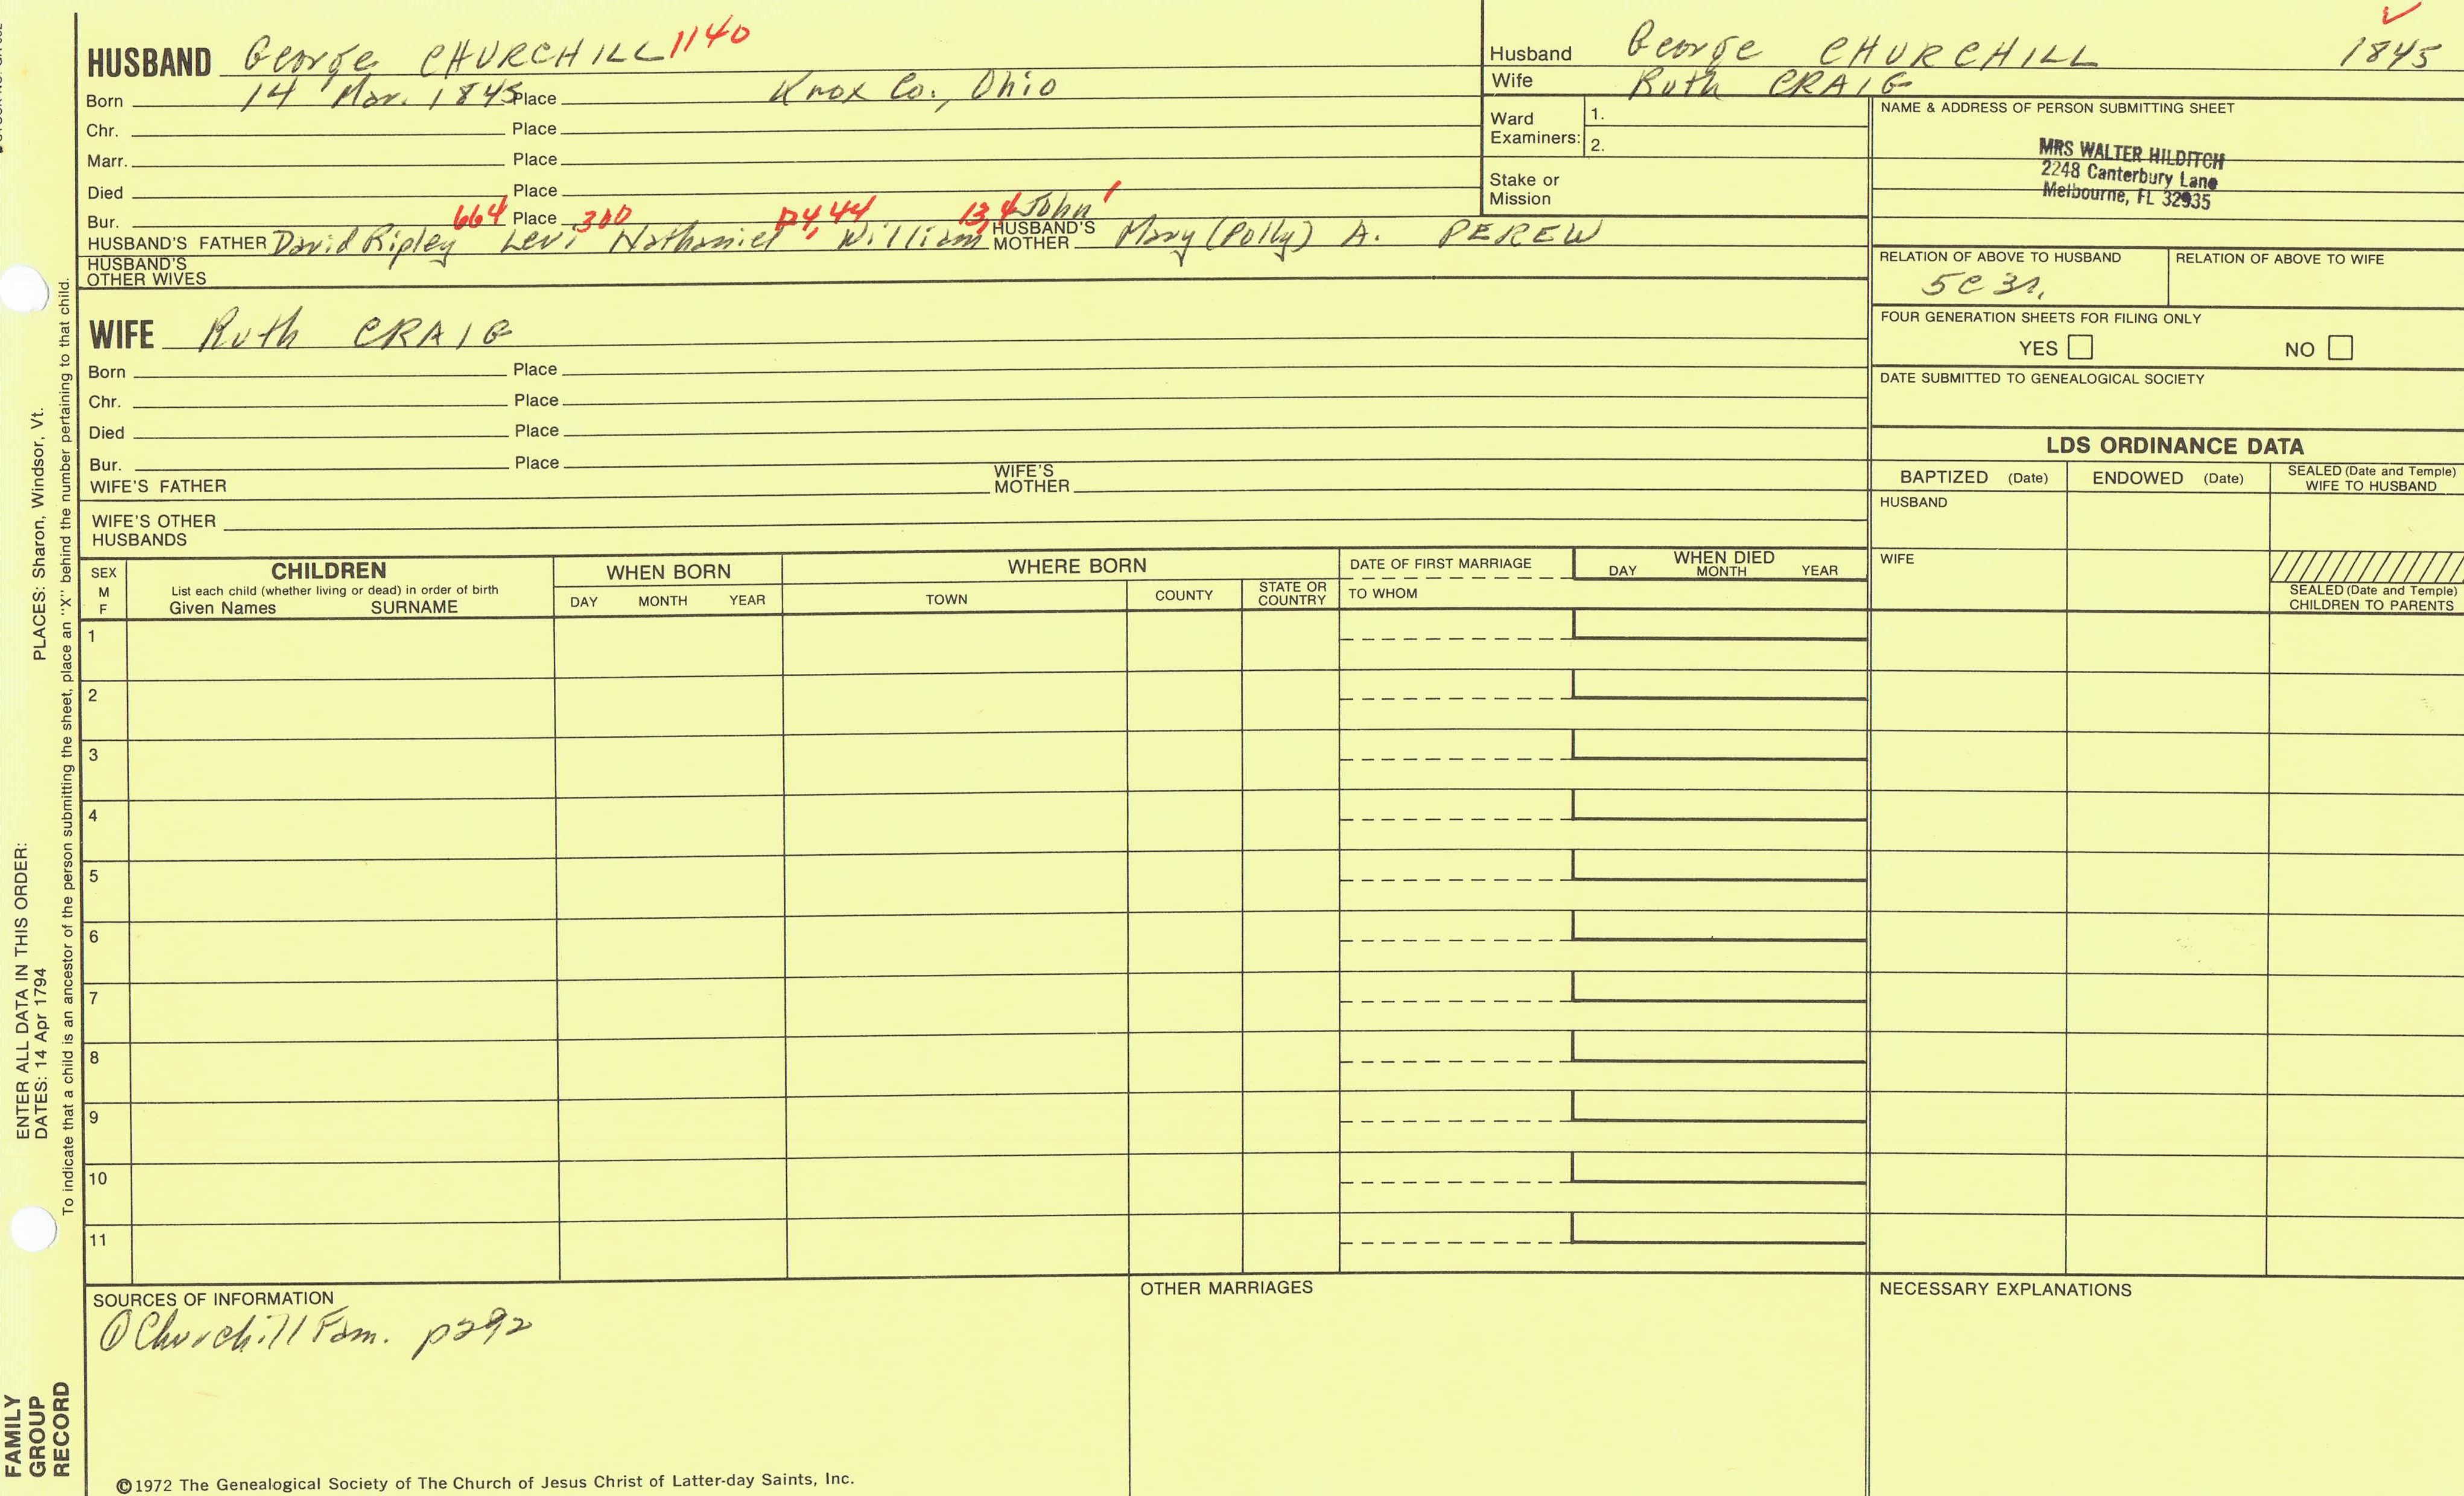 HUSBAND George CHURCHILL 1140
Born 14 Mar. 1845 Place Knox Co., Ohio
Chr. Place
Marr. Place
Died Place
Bur. 664 Place 300 124, 44 13, 4 John 1
HUSBAND'S FATHER David Ripley Levi Nathaniel William HUSBAND'S MOTHER Mary (Polly) A. PEREW
HUSBAND'S OTHER WIVES
WIFE Ruth CRAIG
Born Place
Chr. Place
Died Place
Bur. Place
WIFE'S FATHER WIFE'S MOTHER
WIFE'S OTHER HUSBANDS
Husband George CHURCHILL 1845
Wife Ruth CRAIG
Ward Examiners: 1.
2.
Stake or Mission
NAME & ADDRESS OF PERSON SUBMITTING SHEET
MRS WALTER HILDITCH
2248 Canterbury Lane
Melbourne, FL 32935
RELATION OF ABOVE TO HUSBAND RELATION OF ABOVE TO WIFE
5C 3r.
FOUR GENERATION SHEETS FOR FILING ONLY
YES NO
DATE SUBMITTED TO GENEALOGICAL SOCIETY
LDS ORDINANCE DATA
BAPTIZED (Date) ENDOWED (Date) SEALED (Date and Temple) WIFE TO HUSBAND
HUSBAND
WIFE
SEALED (Date and Temple) CHILDREN TO PARENTS
SEX M F
CHILDREN
List each child (whether living or dead) in order of birth
Given Names SURNAME
WHEN BORN
DAY MONTH YEAR
WHERE BORN
TOWN COUNTY STATE OR COUNTRY
DATE OF FIRST MARRIAGE
TO WHOM
WHEN DIED
DAY MONTH YEAR
1
2
3
4
5
6
7
8
9
10
11
SOURCES OF INFORMATION
① Churchill Fam. p292
OTHER MARRIAGES
NECESSARY EXPLANATIONS
©1972 The Genealogical Society of The Church of Jesus Christ of Latter-day Saints, Inc.
FAMILY GROUP RECORD
ENTER ALL DATA IN THIS ORDER:
DATES: 14 Apr 1794 PLACES: Sharon, Windsor, Vt.
To indicate that a child is an ancestor of the person submitting the sheet, place an "X" behind the number pertaining to that child.